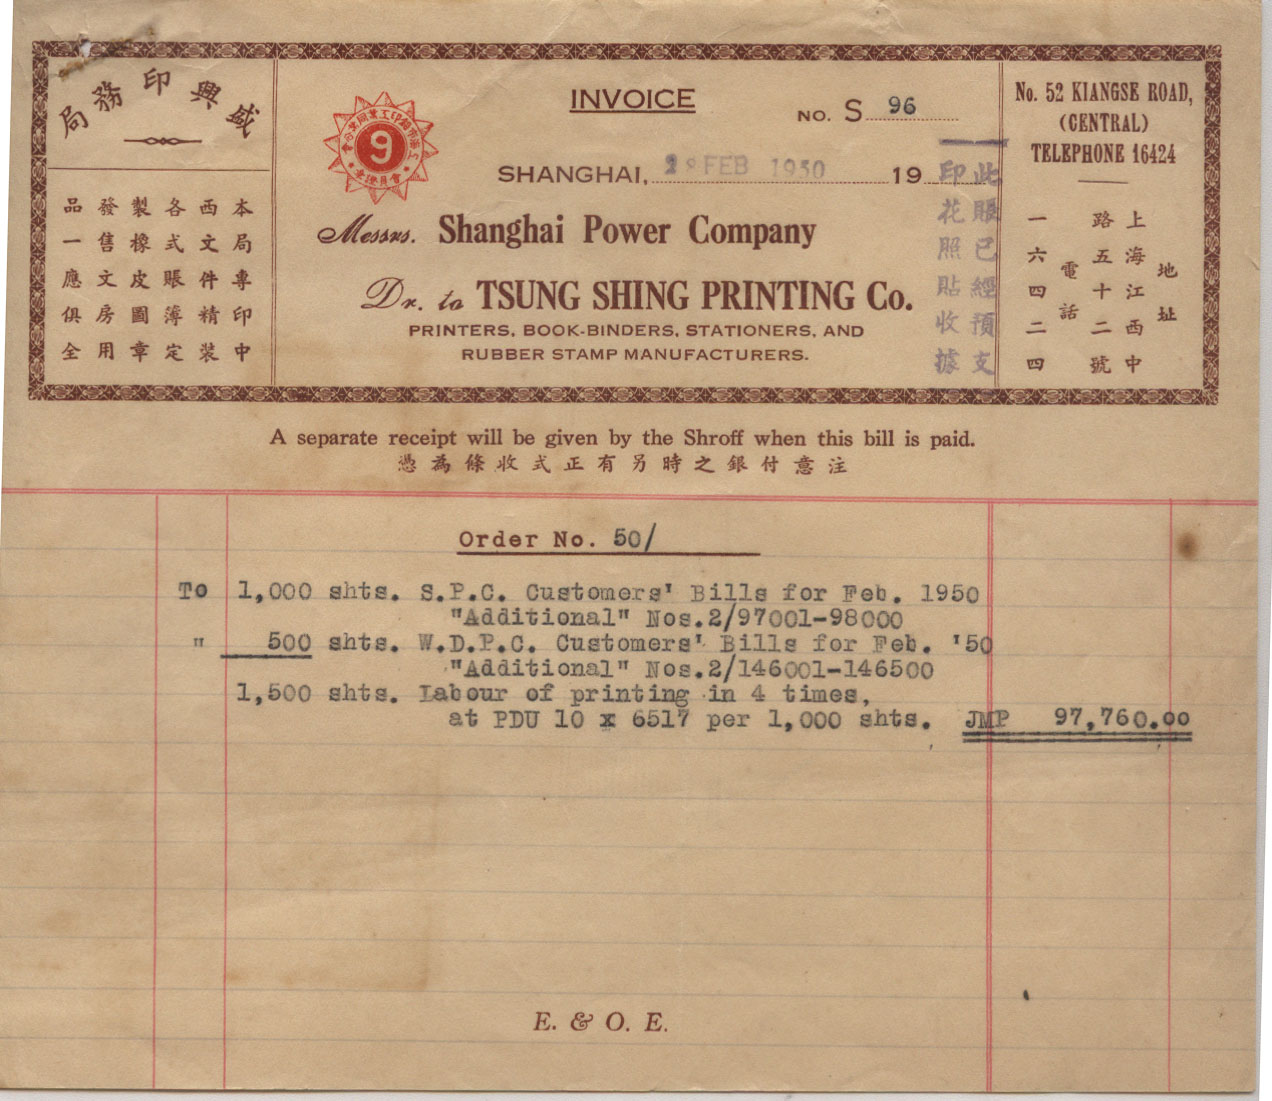 盛興印務局
本局專印中
西文件精裝
各式賬簿定
製橡皮圖章
發售文房用
品一應俱全
9
INVOICE
NO. S 96
SHANGHAI, 28 FEB 1950 19
Messrs. Shanghai Power Company
Dr. to TSUNG SHING PRINTING Co.
PRINTERS, BOOK-BINDERS, STATIONERS, AND
RUBBER STAMP MANUFACTURERS.
此賬已經預支
印花照貼收據
No. 52 KIANGSE ROAD,
(CENTRAL)
TELEPHONE 16424
地址
上海江西中
路五十二號
電話
一六四二四
A separate receipt will be given by the Shroff when this bill is paid.
注意付銀之時另有正式收條為憑
Order No. 50/
To 1,000 shts. S.P.C. Customers' Bills for Feb. 1950
"Additional" Nos.2/97001-98000
" 500 shts. W.D.P.C. Customers' Bills for Feb. '50
"Additional" Nos.2/146001-146500
1,500 shts. Labour of printing in 4 times,
at PDU 10 x 6517 per 1,000 shts. JMP 97,760.00
E. & O. E.